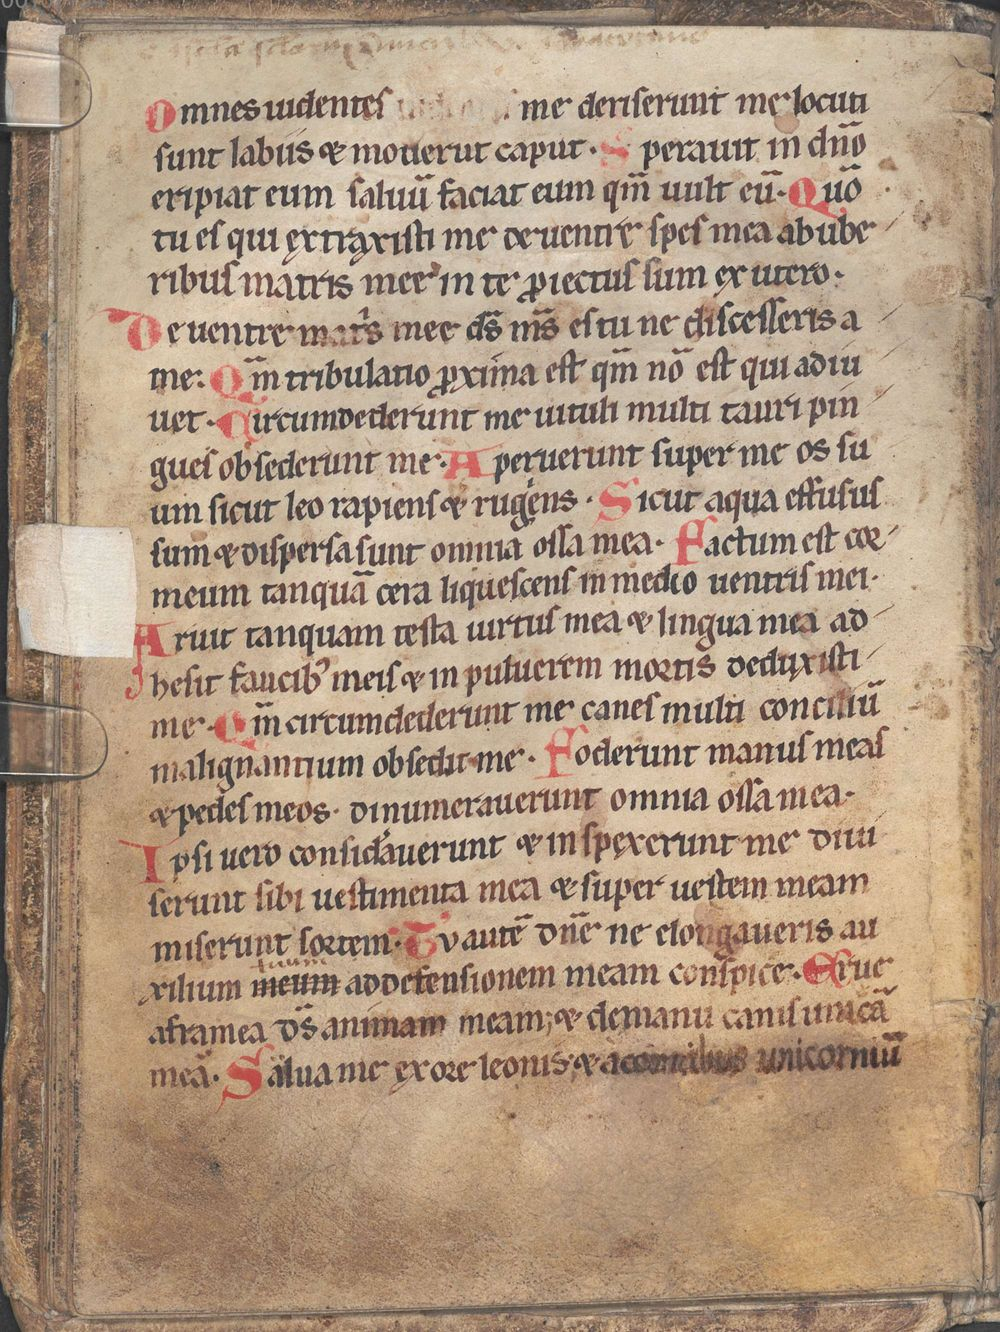 Omnes uidentes me deriserunt me locuti
sunt labiis & mouerūt caput. Sperauit in dn̄o
eripiat eum saluū faciat eum qm̄ uult eū. Quō
tu es qui extraxisti me de uentre spes mea ab ube
ribus matris mee in te ꝓiectus sum ex utero.
De uentre mat̄s mee ds̄ ms̄ es tu ne discesseris a
me. Qm̄ tribulatio ꝓxima est qm̄ nō est qui adiu
uet. Circumdederunt me uituli multi tauri pin
gues obsederunt me. Aperuerunt super me os su
um sicut leo rapiens & rugens. Sicut aqua effusus
sum & dispersa sunt omnia ossa mea. Factum est cor
meum tanquā cera liquescens in medio uentris mei.
Aruit tanquam testa uirtus mea & lingua mea ad
hesit faucibꝰ meis & in puluerem mortis deduxisti
me. Qm̄ circumdederunt me canes multi conciliū
malignantium obsedit me. Foderunt manus meas
& pedes meos. dinumerauerunt omnia ossa mea.
Ipsi uero considauerunt & inspexerunt me diui
serunt sibi uestimenta mea & super uestem meam
miserunt sortem. Tv autē dn̄e ne elongaueris au
tuum
xilium meum ad defensionem meam conspice. Erue
a framea ds̄ animam meam; & de manu canis unicā
meā. Salua me ex ore leonis. & a cornibus unicorniū